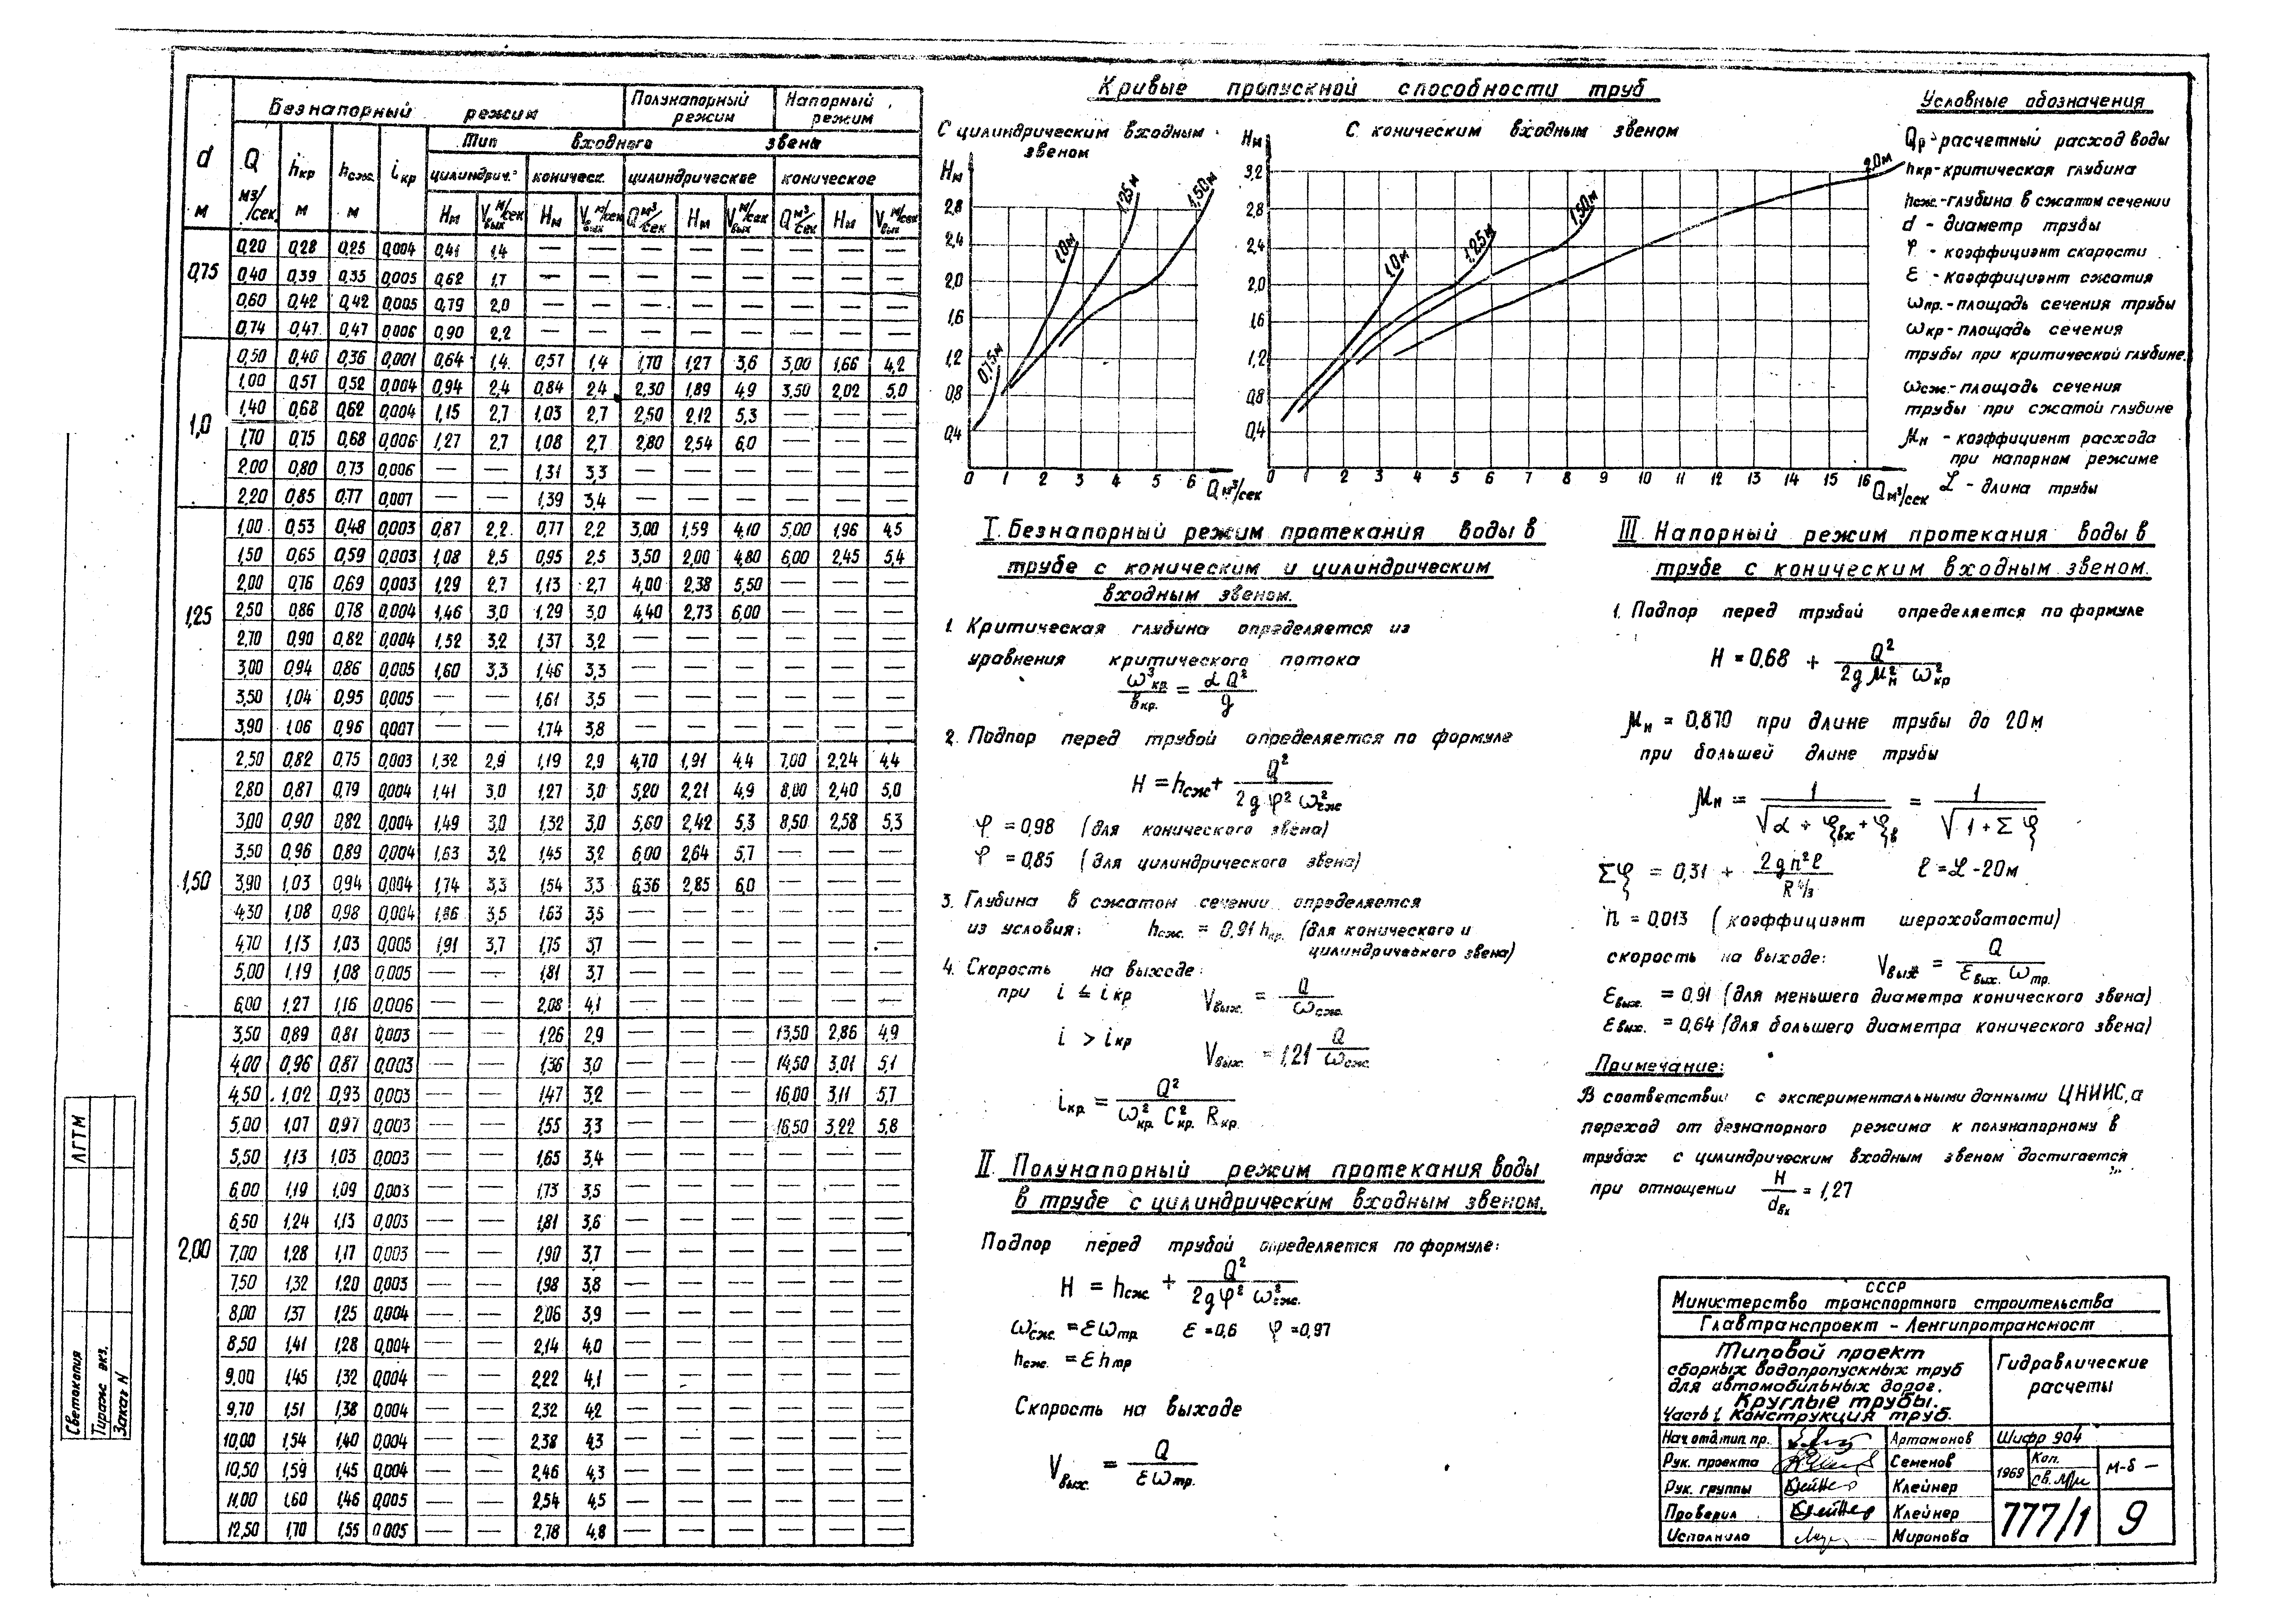 Кривые пропускной способности труб
d
м
Безнапорный режим
Полунапорный режим
Напорный режим
Тип входного звена
Q м3/сек
hкр м
hсж. м
iкр
цилиндрич.
коническ.
цилиндрическое
коническое
Hм Vвых м/сек Hм Vвых м/сек Q м3/сек Hм Vвых м/сек Q м3/сек Hм Vвых м/сек
0,75
0,20 0,28 0,25 0,004 0,41 1,4 — — — — — — — —
0,40 0,39 0,35 0,005 0,62 1,7 — — — — — — — —
0,60 0,42 0,42 0,005 0,79 2,0 — — — — — — — —
0,74 0,47 0,47 0,006 0,90 2,2 — — — — — — — —
1,0
0,50 0,40 0,36 0,001 0,64 1,4 0,57 1,4 1,70 1,27 3,6 3,00 1,66 4,2
1,00 0,57 0,52 0,004 0,94 2,4 0,84 2,4 2,30 1,89 4,9 3,50 2,02 5,0
1,40 0,68 0,62 0,004 1,15 2,7 1,03 2,7 2,50 2,12 5,3 — — —
1,70 0,75 0,68 0,006 1,27 2,7 1,08 2,7 2,80 2,54 6,0 — — —
2,00 0,80 0,73 0,006 — — 1,31 3,3 — — — — — —
2,20 0,85 0,77 0,007 — — 1,39 3,4 — — — — — —
1,25
1,00 0,53 0,48 0,003 0,87 2,2 0,77 2,2 3,00 1,59 4,10 5,00 1,96 4,5
1,50 0,65 0,59 0,003 1,08 2,5 0,95 2,5 3,50 2,00 4,80 6,00 2,45 5,4
2,00 0,76 0,69 0,003 1,29 2,7 1,13 2,7 4,00 2,38 5,50 — — —
2,50 0,86 0,78 0,004 1,46 3,0 1,29 3,0 4,40 2,73 6,00 — — —
2,70 0,90 0,82 0,004 1,52 3,2 1,37 3,2 — — — — — —
3,00 0,94 0,86 0,005 1,60 3,3 1,46 3,3 — — — — — —
3,50 1,04 0,95 0,005 — — 1,61 3,5 — — — — — —
3,90 1,06 0,96 0,007 — — 1,74 3,8 — — — — — —
1,50
2,50 0,82 0,75 0,003 1,32 2,9 1,19 2,9 4,70 1,91 4,4 7,00 2,24 4,4
2,80 0,87 0,79 0,004 1,41 3,0 1,27 3,0 5,20 2,21 4,9 8,00 2,40 5,0
3,00 0,90 0,82 0,004 1,49 3,0 1,32 3,0 5,60 2,42 5,3 8,50 2,58 5,3
3,50 0,96 0,89 0,004 1,63 3,2 1,45 3,2 6,00 2,64 5,7 — — —
3,90 1,03 0,94 0,004 1,74 3,3 1,54 3,3 6,36 2,85 6,0 — — —
4,30 1,08 0,98 0,004 1,86 3,5 1,63 3,5 — — — — — —
4,70 1,13 1,03 0,005 1,91 3,7 1,75 3,7 — — — — — —
5,00 1,19 1,08 0,005 — — 1,81 3,7 — — — — — —
6,00 1,27 1,16 0,006 — — 2,08 4,1 — — — — — —
2,00
3,50 0,89 0,81 0,003 — — 1,26 2,9 — — — 13,50 2,86 4,9
4,00 0,96 0,87 0,003 — — 1,36 3,0 — — — 14,50 3,01 5,1
4,50 1,02 0,93 0,003 — — 1,47 3,2 — — — 16,00 3,11 5,7
5,00 1,07 0,97 0,003 — — 1,55 3,3 — — — 16,50 3,22 5,8
5,50 1,13 1,03 0,003 — — 1,65 3,4 — — — — — —
6,00 1,19 1,09 0,003 — — 1,73 3,5 — — — — — —
6,50 1,24 1,13 0,003 — — 1,81 3,6 — — — — — —
7,00 1,28 1,17 0,003 — — 1,90 3,7 — — — — — —
7,50 1,32 1,20 0,003 — — 1,98 3,8 — — — — — —
8,00 1,37 1,25 0,004 — — 2,06 3,9 — — — — — —
8,50 1,41 1,28 0,004 — — 2,14 4,0 — — — — — —
9,00 1,45 1,32 0,004 — — 2,22 4,1 — — — — — —
9,70 1,51 1,38 0,004 — — 2,32 4,2 — — — — — —
10,00 1,54 1,40 0,004 — — 2,38 4,3 — — — — — —
10,50 1,59 1,45 0,004 — — 2,46 4,3 — — — — — —
11,00 1,60 1,46 0,005 — — 2,54 4,5 — — — — — —
12,50 1,70 1,55 0,005 — — 2,78 4,8 — — — — — —
С цилиндрическим входным
звеном
Hм
2,8
2,4
2,0
1,6
1,2
0,8
0,4
0 1 2 3 4 5 6 Q м³/сек
0,75м
1,0м
1,25м
1,50м
С коническим входным звеном
Hм
3,2
2,8
2,4
2,0
1,6
1,2
0,8
0,4
0 1 2 3 4 5 6 7 8 9 10 11 12 13 14 15 16 Q м³/сек
1,0м
1,25м
1,50м
2,0м
Условные обозначения
Qр - расчетный расход воды
hкр - критическая глубина
hсж. - глубина в сжатом сечении
d - диаметр трубы
φ - коэффициент скорости
ε - коэффициент сжатия
ωпр. - площадь сечения трубы
ωкр - площадь сечения
трубы при критической глубине.
ωсж. - площадь сечения
трубы при сжатой глубине
μн - коэффициент расхода
при напорном режиме
ℒ - длина трубы
I. Безнапорный режим протекания воды в
трубе с коническим и цилиндрическим
входным звеном.
1. Критическая глубина определяется из
уравнения критического потока
ω³кр./вкр. = αQ²/g
2. Подпор перед трубой определяется по формуле
H = hсж + Q²/2gφ²ω²сж
φ = 0,98 (для конического звена)
φ = 0,85 (для цилиндрического звена)
3. Глубина в сжатом сечении определяется
из условия: hсж. = 0,91 hкр. (для конического и
цилиндрического звена)
4. Скорость на выходе:
при i ≤ iкр Vвых. = Q/ωсж.
i > iкр Vвых. = 1,21 Q/ωсж.
iкр = Q²/ω²кр. C²кр. Rкр.
II. Полунапорный режим протекания воды
в трубе с цилиндрическим входным звеном.
Подпор перед трубой определяется по формуле:
H = hсж. + Q²/2gφ²ω²сж.
ωсж. = εωтр. ε = 0,6 φ = 0,97
hсж. = εhтр
Скорость на выходе
Vвых. = Q/εωтр.
III. Напорный режим протекания воды в
трубе с коническим входным звеном.
1. Подпор перед трубой определяется по формуле
H = 0,68 + Q²/2gμ²н ω²кр
μн = 0,870 при длине трубы до 20м
при большей длине трубы
μн = 1/√α + ξвх + ξв = 1/√1 + Σξ
Σξ = 0,31 + 2gn²ℓ/R⁴/₃ ℓ = ℒ - 20м
n = 0,013 (коэффициент шероховатости)
скорость на выходе: Vвых = Q/εвых. ωтр.
εвых. = 0,91 (для меньшего диаметра конического звена)
εвых. = 0,64 (для большего диаметра конического звена)
Примечание:
В соответствии с экспериментальными данными ЦНИИС, а
переход от безнапорного режима к полунапорному в
трубах с цилиндрическим входным звеном достигается
при отношении H/dвх = 1,27
СССР
Министерство транспортного строительства
Главтранспроект - Ленгипротрансмост
Типовой проект
сборных водопропускных труб
для автомобильных дорог.
Круглые трубы.
Часть 1. Конструкция труб.
Гидравлические
расчеты
Нач. отд. тип. пр. Артамонов
Рук. проекта Семенов
Рук. группы Клейнер
Проверил Клейнер
Исполнила Миронова
Шифр 904
1969 Коп. М-б —
Св.
777/1 9
ЛГТМ
Светокопия
Тираж экз.
Заказ N